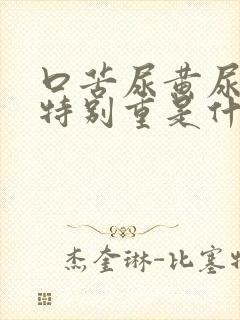 口苦尿黄尿
特别重是什
杰奎琳-比塞特